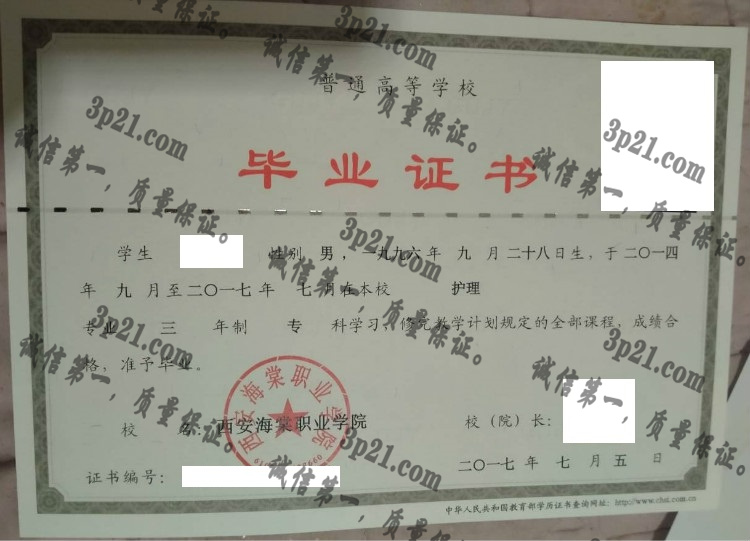 普通高等学校
毕业证书
学生 性别 男，一九九六年 九 月二十八日生，于二〇一四
年 九 月至二〇一七年 七 月在本校 护理
专业 三 年制 专 科学习，修完教学计划规定的全部课程，成绩合
格，准予毕业。
校 名：西安海棠职业学院
校（院）长：
西安海棠职业学院
证书编号：
二〇一七年 七 月 五 日
中华人民共和国教育部学历证书查询网址：http://www.chsi.com.cn
3p21.com
诚信第一，质量保证。
3p21.com
诚信第一，质量保证。
3p21.com
诚信第一，质量保证。
3p21.com
诚信第一，质量保证。
3p21.com
诚信第一，质量保证。
3p21.com
诚信第一，质量保证。
3p21.com
诚信第一，质量保证。
3p21.com
诚信第一，质量保证。